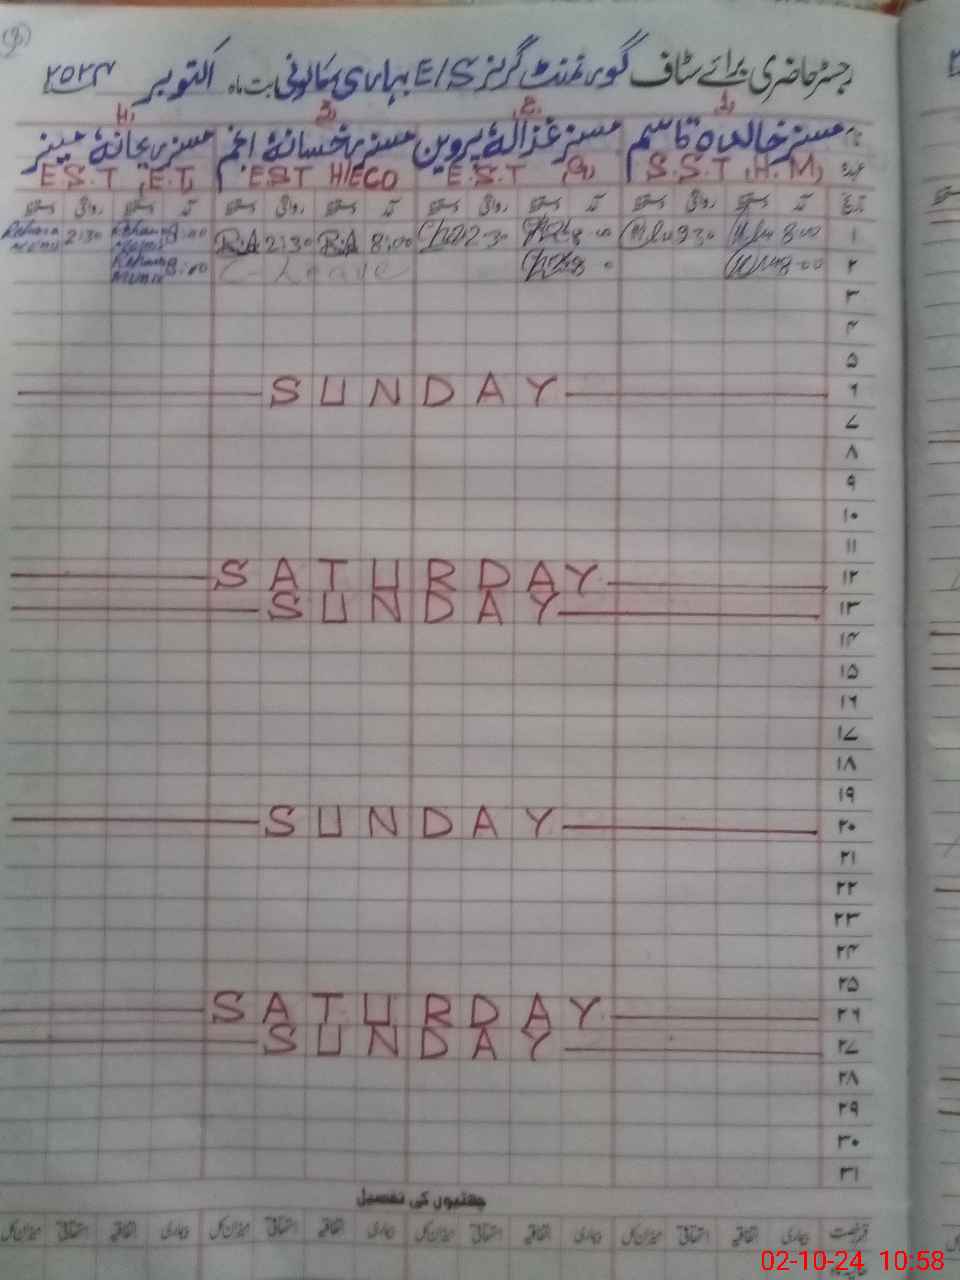 رجسٹر حاضری برائے سٹاف گورنمنٹ گرلز E/S بہاری کالونی بابت ماہ اکتوبر ۲۰۲۴
1, 2, 3, 4,
نام مسز خالدہ قاسم مسز غزالہ پروین مسز رخسانہ انجم مسز ریحانہ منیر
عہدہ S.S.T ,H.M, E.S.T ,G, E.S.T H/ECO E.S.T ,E.T,
تاریخ آمد دستخط روانگی دستخط آمد دستخط روانگی دستخط آمد دستخط روانگی دستخط آمد دستخط روانگی دستخط
۱ 8:00 8:00 2:30 8:00 R.A 2:30 R.A 8:00 Rehana Munir 2:30 Rehana Munir
۲ 8:00 8:00 C-Leave 8:00 Rehana Munir
۳
۴
۵
۶ SUNDAY
۷
۸
۹
۱۰
۱۱
۱۲ SATURDAY
۱۳ SUNDAY
۱۴
۱۵
۱۶
۱۷
۱۸
۱۹
۲۰ SUNDAY
۲۱
۲۲
۲۳
۲۴
۲۵
۲۶ SATURDAY
۲۷ SUNDAY
۲۸
۲۹
۳۰
۳۱
چھٹیوں کی تفصیل
قسم رخصت بیماری اتفاقیہ استحقاقی میزان کل بیماری اتفاقیہ استحقاقی میزان کل بیماری اتفاقیہ استحقاقی میزان کل بیماری اتفاقیہ استحقاقی میزان کل
02-10-24 10:58